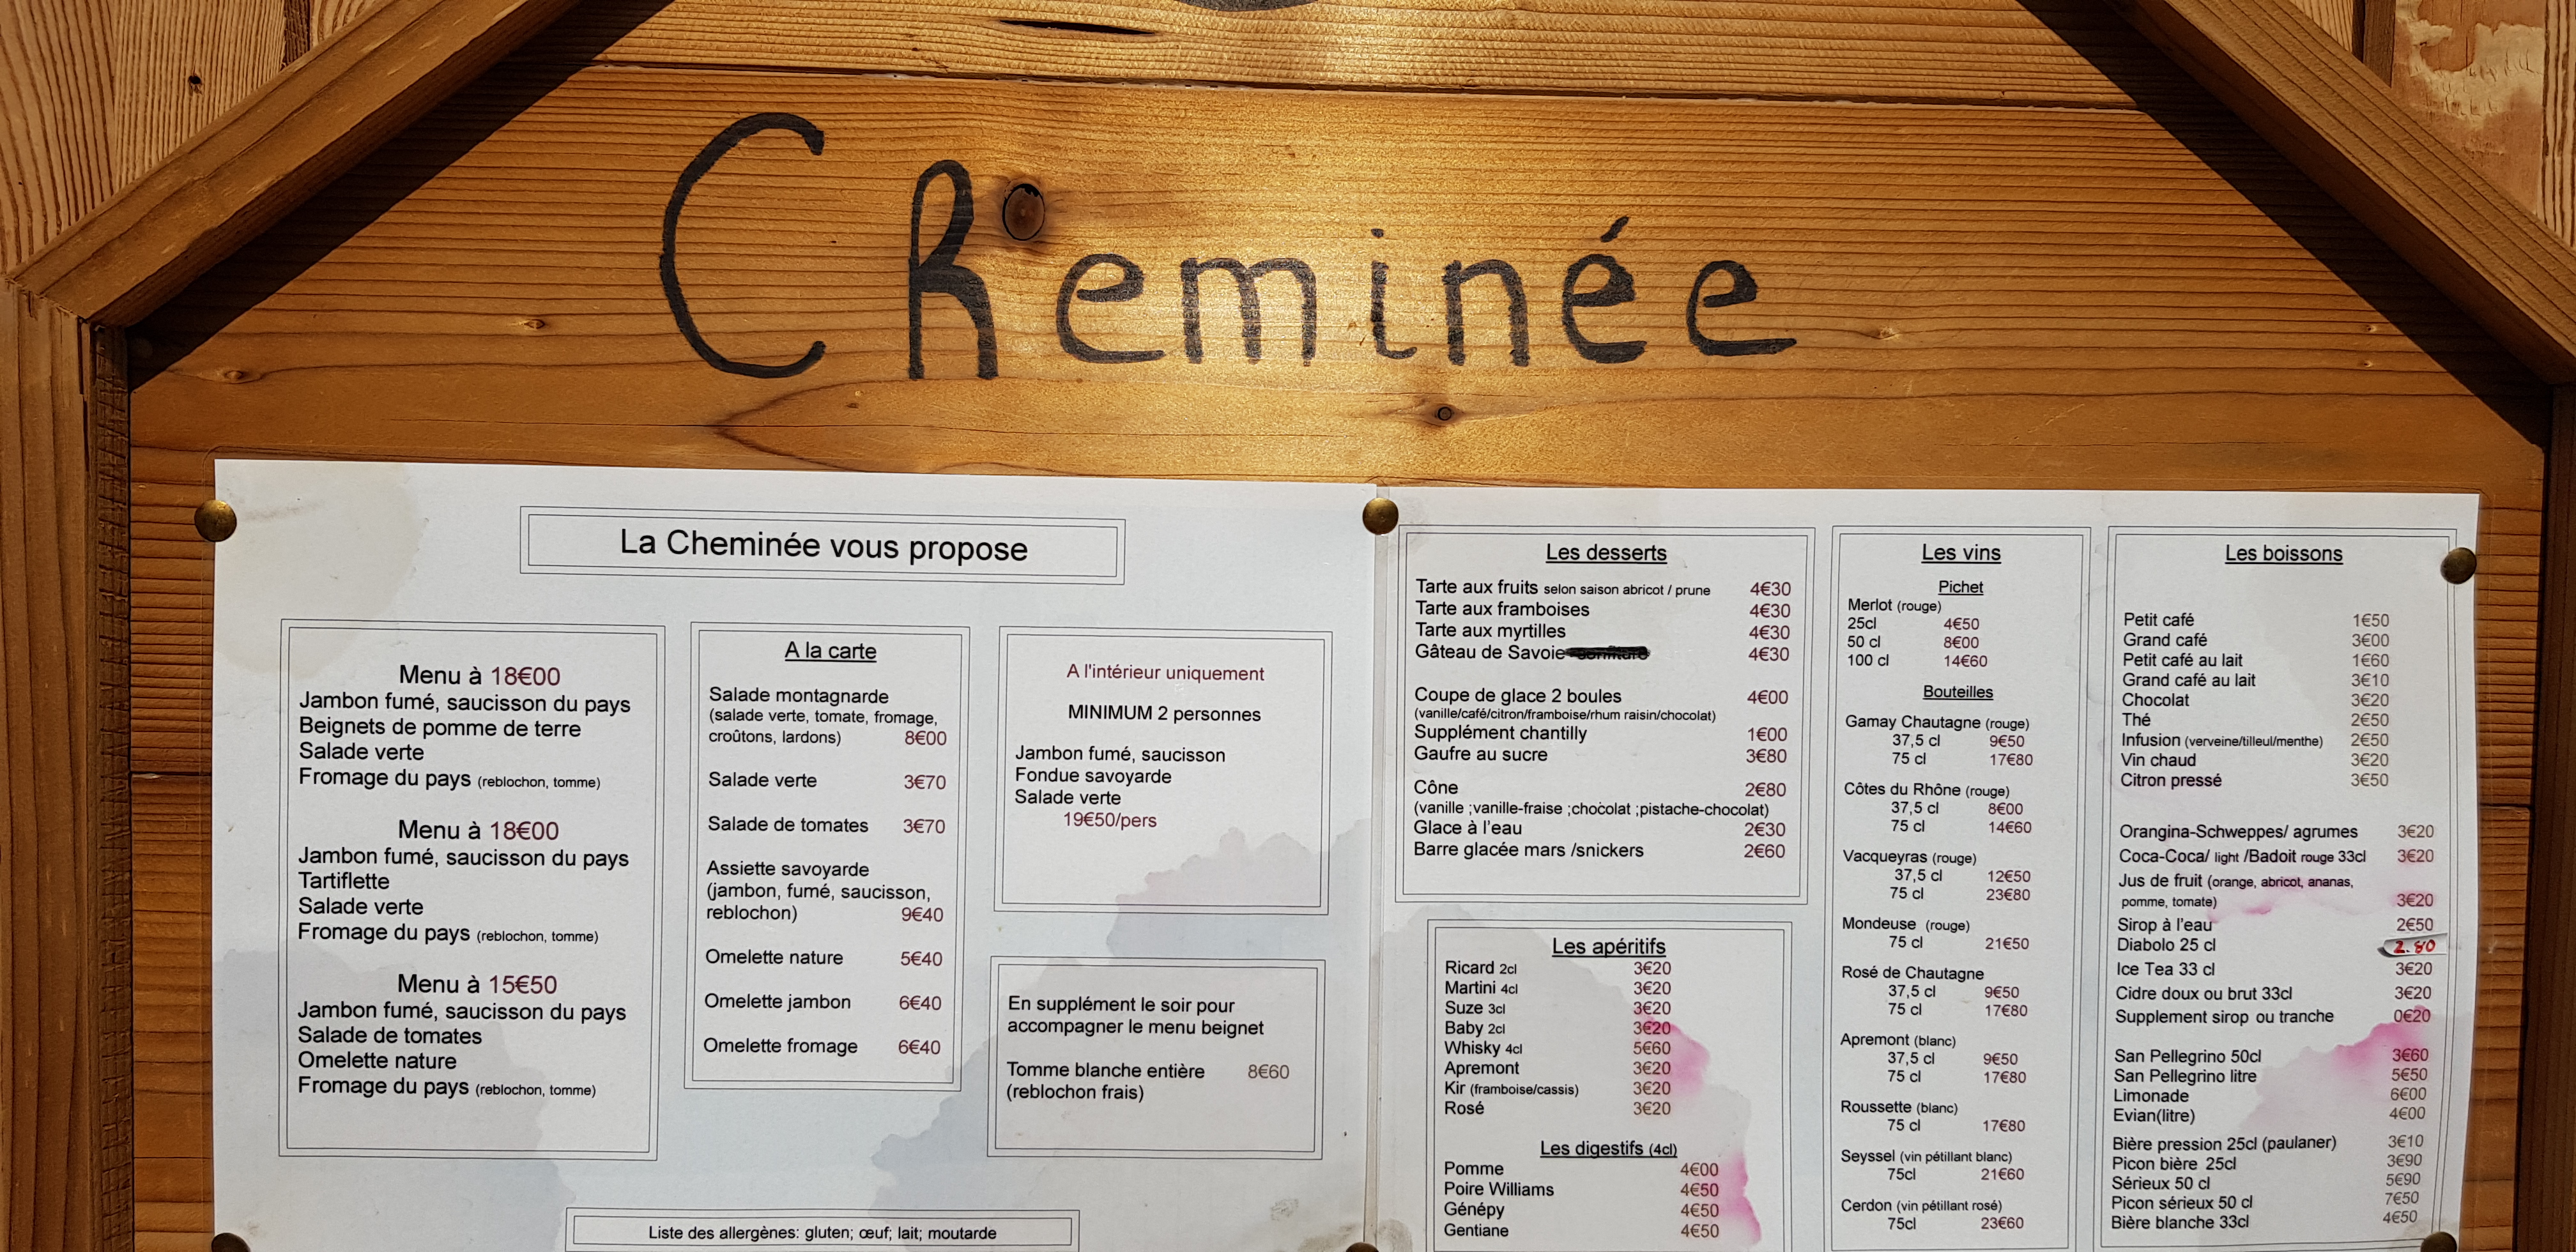 Cheminée
La Cheminée vous propose
Menu à 18€00
Jambon fumé, saucisson du pays
Beignets de pomme de terre
Salade verte
Fromage du pays (reblochon, tomme)
Menu à 18€00
Jambon fumé, saucisson du pays
Tartiflette
Salade verte
Fromage du pays (reblochon, tomme)
Menu à 15€50
Jambon fumé, saucisson du pays
Salade de tomates
Omelette nature
Fromage du pays (reblochon, tomme)
A la carte
Salade montagnarde
(salade verte, tomate, fromage,
croûtons, lardons) 8€00
Salade verte 3€70
Salade de tomates 3€70
Assiette savoyarde
(jambon, fumé, saucisson,
reblochon) 9€40
Omelette nature 5€40
Omelette jambon 6€40
Omelette fromage 6€40
A l'intérieur uniquement
MINIMUM 2 personnes
Jambon fumé, saucisson
Fondue savoyarde
Salade verte
19€50/pers
En supplément le soir pour
accompagner le menu beignet
Tomme blanche entière 8€60
(reblochon frais)
Liste des allergènes: gluten; œuf; lait; moutarde
Les desserts
Tarte aux fruits selon saison abricot / prune 4€30
Tarte aux framboises 4€30
Tarte aux myrtilles 4€30
Gâteau de Savoie 4€30
Coupe de glace 2 boules 4€00
(vanille/café/citron/framboise/rhum raisin/chocolat)
Supplément chantilly 1€00
Gaufre au sucre 3€80
Cône 2€80
(vanille ;vanille-fraise ;chocolat ;pistache-chocolat)
Glace à l'eau 2€30
Barre glacée mars /snickers 2€60
Les apéritifs
Ricard 2cl 3€20
Martini 4cl 3€20
Suze 3cl 3€20
Baby 2cl 3€20
Whisky 4cl 5€60
Apremont 3€20
Kir (framboise/cassis) 3€20
Rosé 3€20
Les digestifs (4cl)
Pomme 4€00
Poire Williams 4€50
Génépy 4€50
Gentiane 4€50
Les vins
Pichet
Merlot (rouge)
25cl 4€50
50 cl 8€00
100 cl 14€60
Bouteilles
Gamay Chautagne (rouge)
37,5 cl 9€50
75 cl 17€80
Côtes du Rhône (rouge)
37,5 cl 8€00
75 cl 14€60
Vacqueyras (rouge)
37,5 cl 12€50
75 cl 23€80
Mondeuse (rouge)
75 cl 21€50
Rosé de Chautagne
37,5 cl 9€50
75 cl 17€80
Apremont (blanc)
37,5 cl 9€50
75 cl 17€80
Roussette (blanc)
75 cl 17€80
Seyssel (vin pétillant blanc)
75cl 21€60
Cerdon (vin pétillant rosé)
75cl 23€60
Les boissons
Petit café 1€50
Grand café 3€00
Petit café au lait 1€60
Grand café au lait 3€10
Chocolat 3€20
Thé 2€50
Infusion (verveine/tilleul/menthe) 2€50
Vin chaud 3€20
Citron pressé 3€50
Orangina-Schweppes/ agrumes 3€20
Coca-Coca/ light /Badoit rouge 33cl 3€20
Jus de fruit (orange, abricot, ananas,
pomme, tomate) 3€20
Sirop à l'eau 2€50
Diabolo 25 cl 2.80
Ice Tea 33 cl 3€20
Cidre doux ou brut 33cl 3€20
Supplement sirop ou tranche 0€20
San Pellegrino 50cl 3€60
San Pellegrino litre 5€50
Limonade 6€00
Evian(litre) 4€00
Bière pression 25cl (paulaner) 3€10
Picon bière 25cl 3€90
Sérieux 50 cl 5€90
Picon sérieux 50 cl 7€50
Bière blanche 33cl 4€50